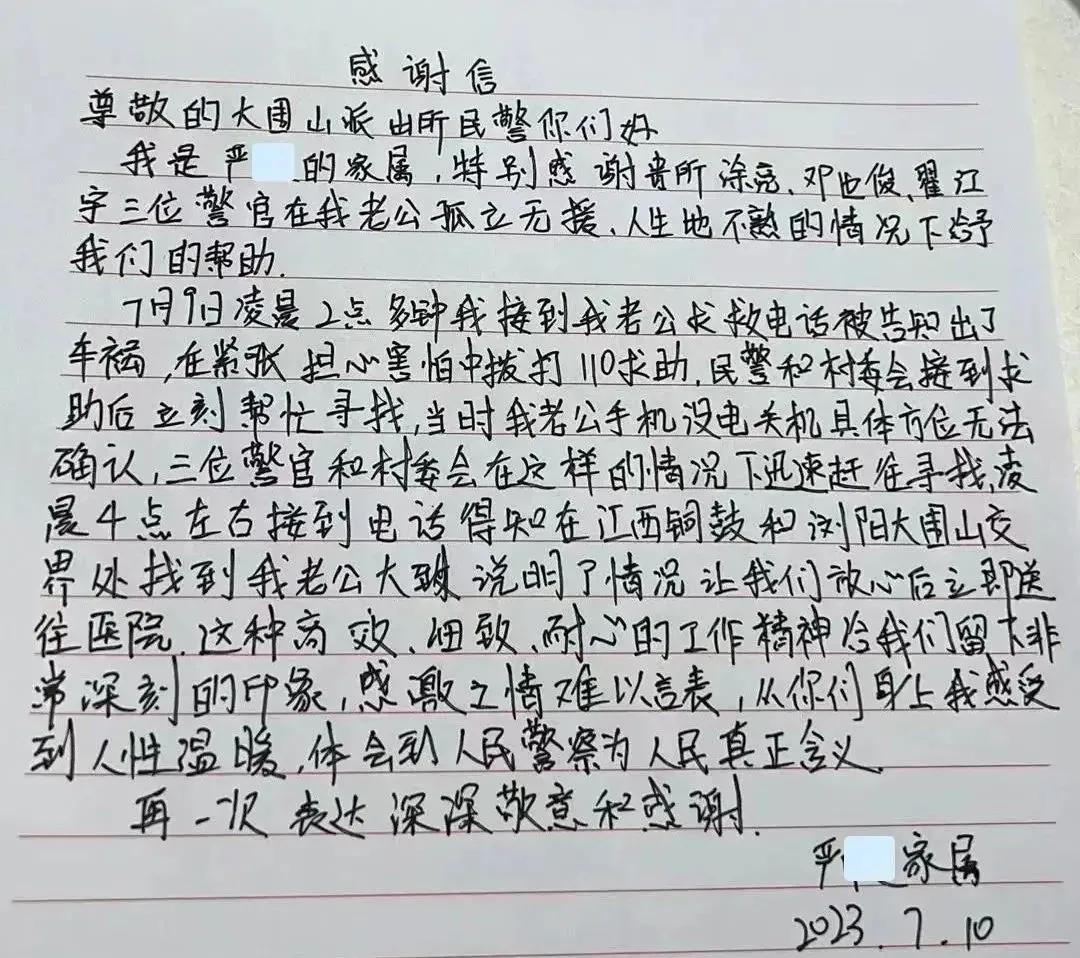 感谢信
尊敬的大围山派出所民警你们好
我是严 的家属，特别感谢贵所涂亮、邓也俊、翟江
宇三位警官在我老公孤立无援、人生地不熟的情况下给予
我们的帮助.
7月9日凌晨2点多钟我接到我老公求救电话被告知出了
车祸，在紧张担心害怕中拨打110求助.民警和村委会接到求
助后立刻帮忙寻找,当时我老公手机没电关机具体方位无法
确认,三位警官和村委会在这样的情况下迅速赶往寻找,凌
晨4点左右接到电话得知在江西铜鼓和浏阳大围山交
界处找到我老公大致说明了情况让我们放心后立即送
往医院.这种高效、细致、耐心的工作精神给我们留下非
常深刻的印象，感激之情难以言表，从你们身上我感受
到人性温暖,体会到人民警察为人民真正含义.
再一次表达深深敬意和感谢.
严 家属
2023.7.10